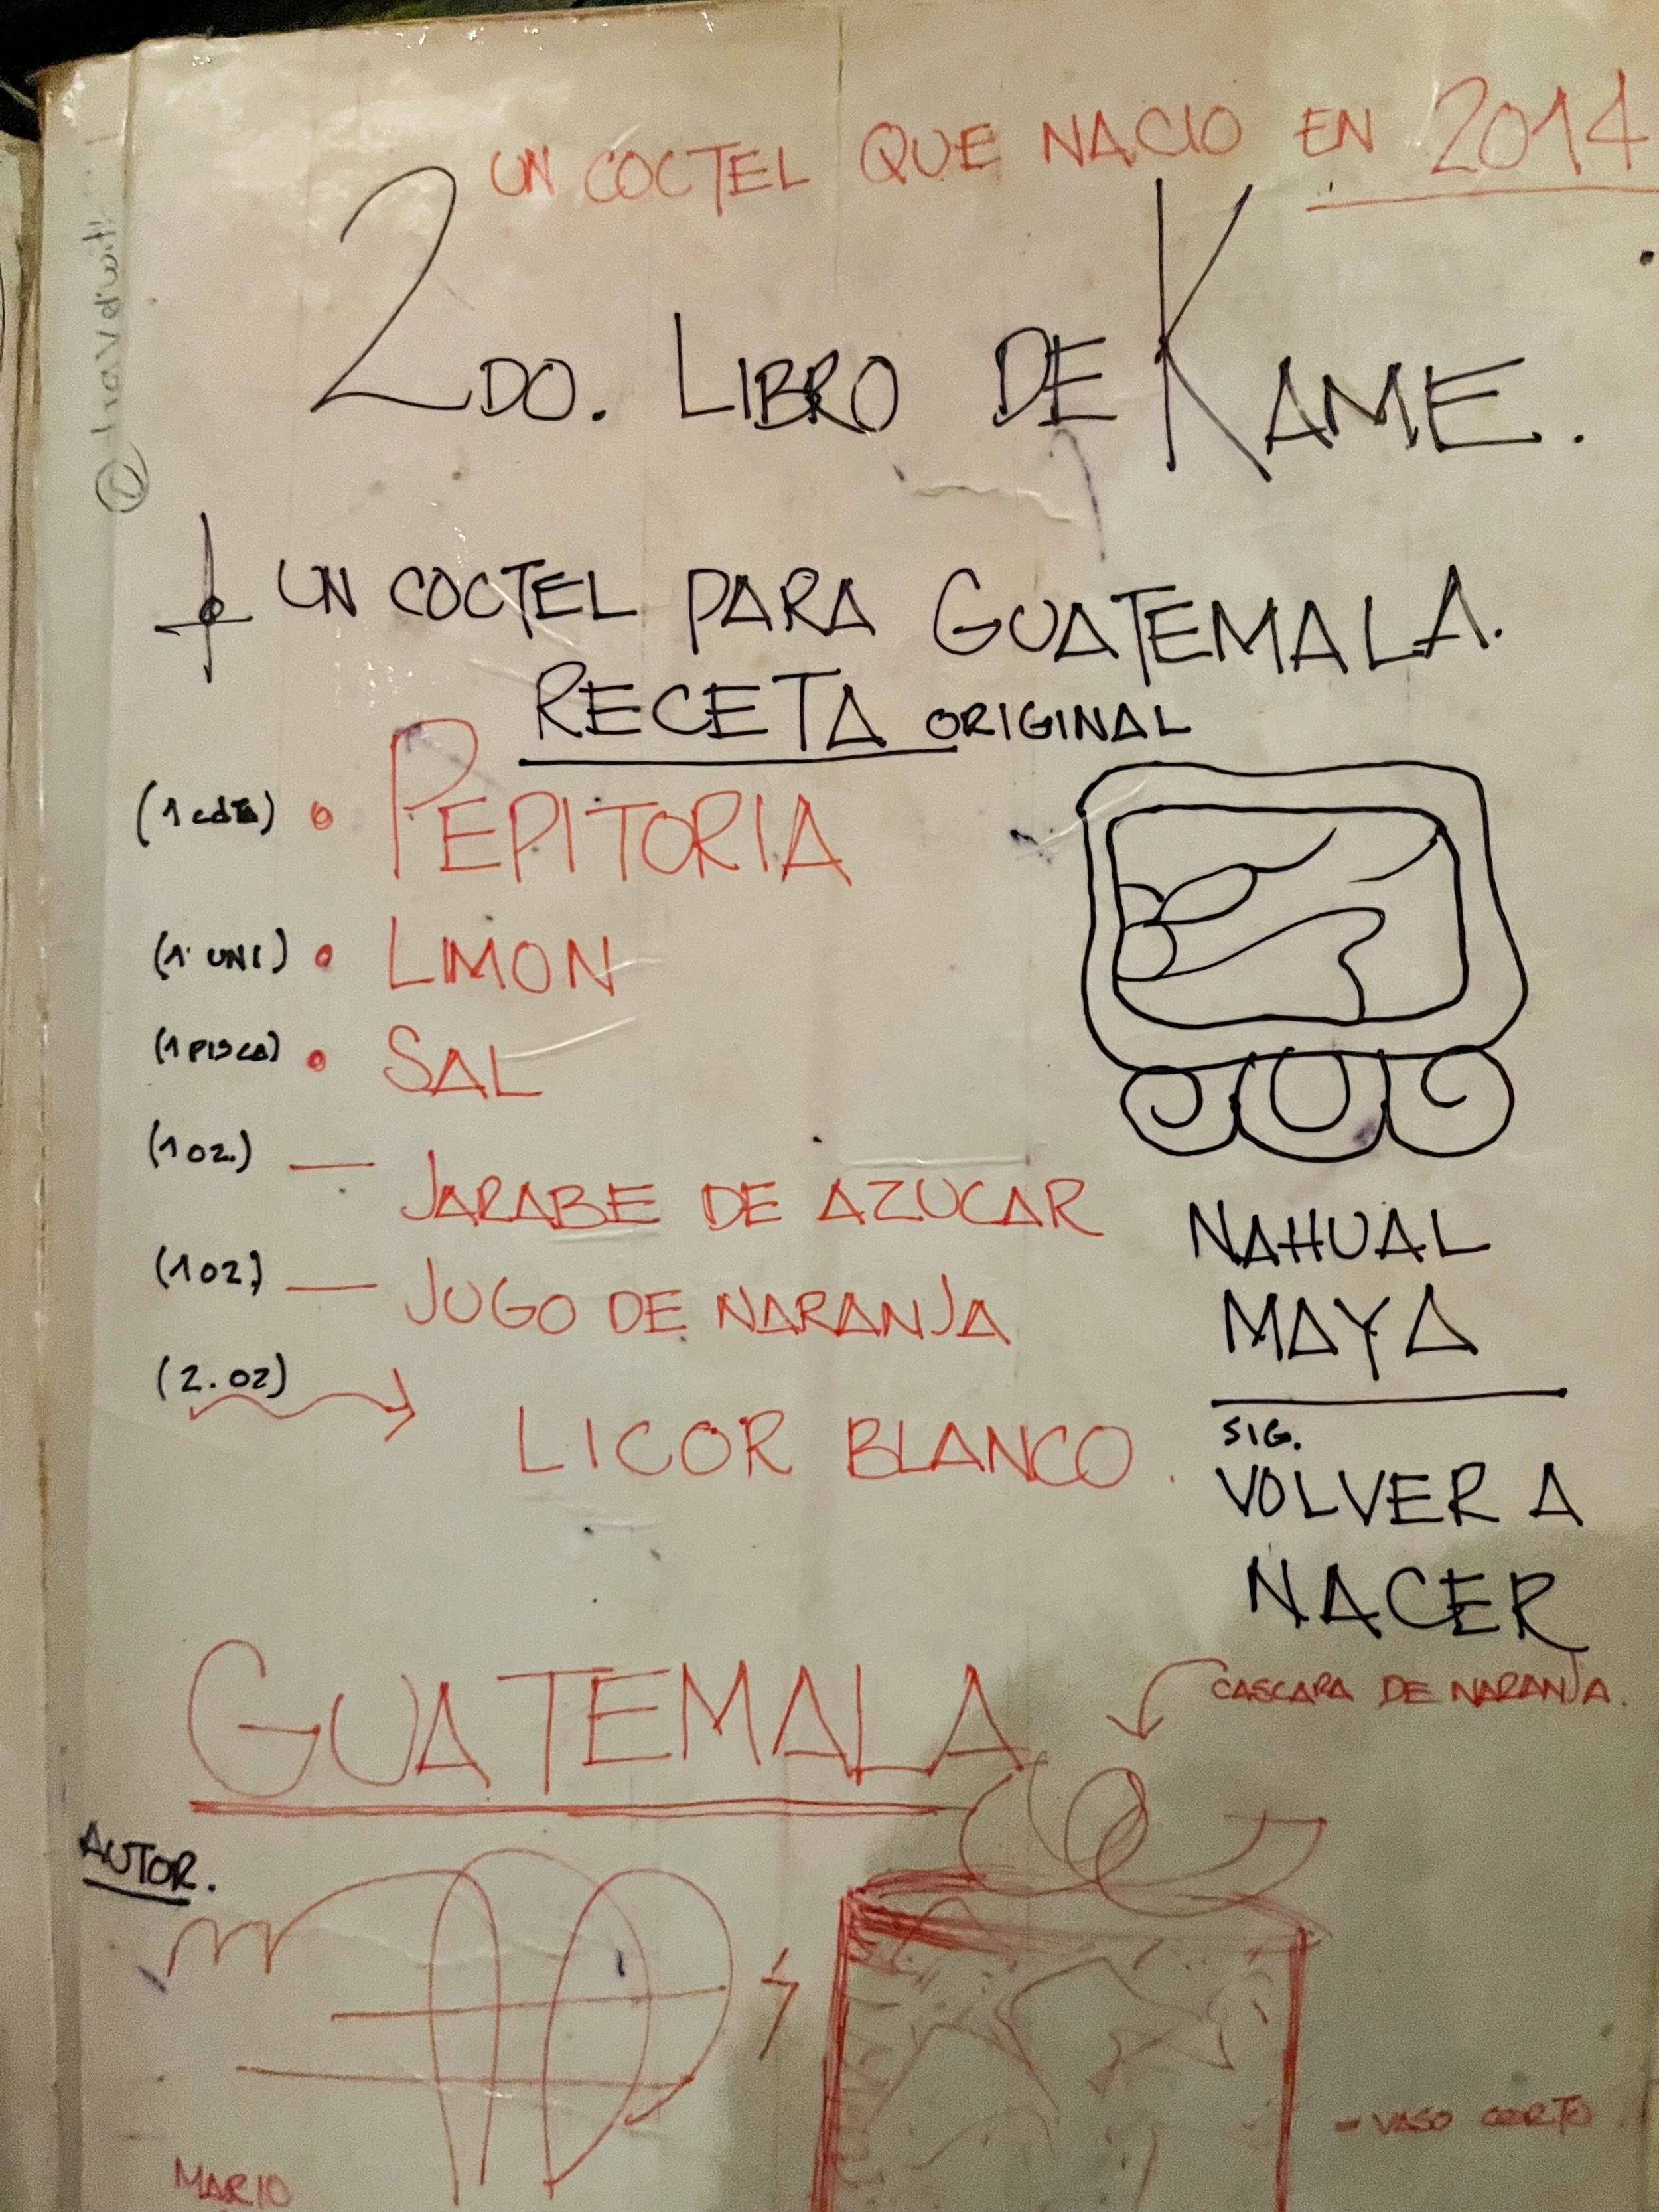 UN COCTEL QUE NACIO EN 2014
2DO. LIBRO DE KAME.
UN COCTEL PARA GUATEMALA.
RECETA ORIGINAL
(1 cdta) • PEPITORIA
(1 UNI) • LIMON
(1 PISCA) • SAL
(1 oz.) — JARABE DE AZUCAR
(1 oz) — JUGO DE NARANJA
(2. oz) LICOR BLANCO.
NAHUAL
MAYA
SIG.
VOLVER A
NACER
GUATEMALA
CASCARA DE NARANJA.
AUTOR.
- VASO CORTO
MARIO